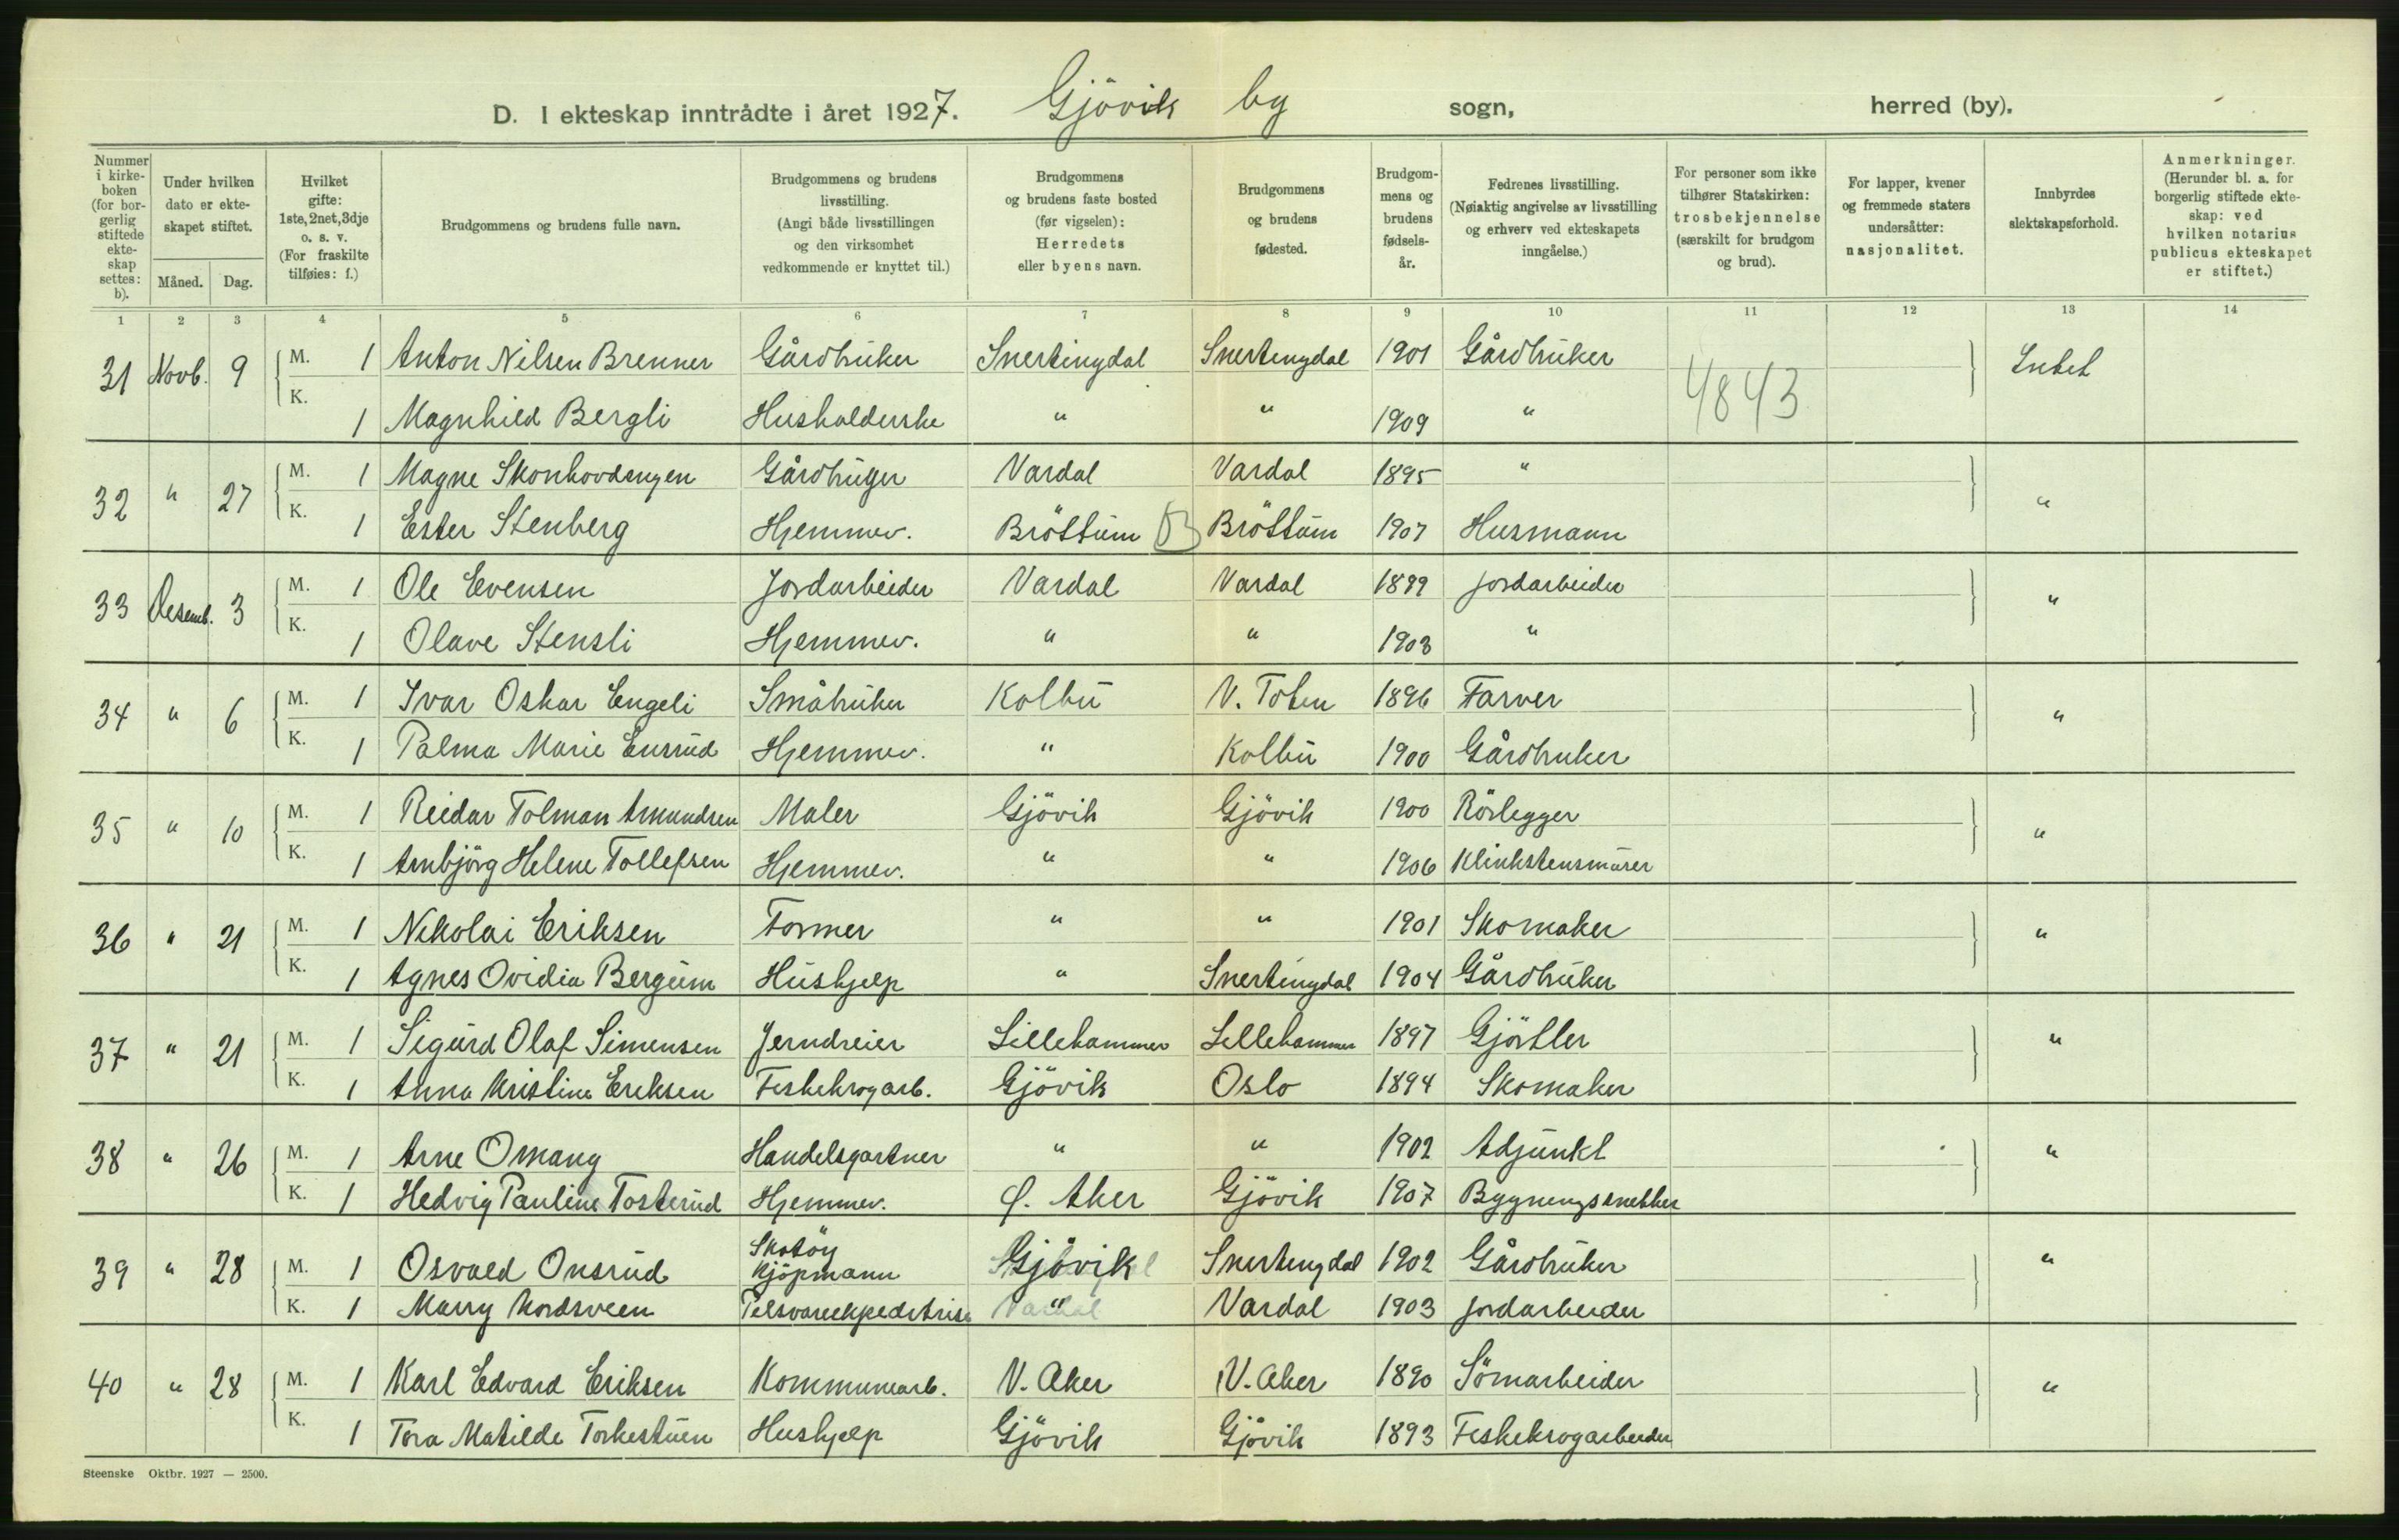 D. I ekteskap inntrådte i året 1927. Gjövik by sogn, herred (by).
Nummer i kirkeboken (for borgerlig stiftede ekteskap settes: b).
Under hvilken dato er ekteskapet stiftet.
Måned. Dag.
Hvilket gifte: 1ste, 2net, 3dje o. s. v. (For fraskilte tilføies: f.)
Brudgommens og brudens fulle navn.
Brudgommens og brudens livsstilling. (Angi både livsstillingen og den virksomhet vedkommende er knyttet til.)
Brudgommens og brudens faste bosted (før vigselen): Herredets eller byens navn.
Brudgommens og brudens fødested.
Brudgommens og brudens fødselsår.
Fedrenes livsstilling. (Nøiaktig angivelse av livsstilling og erhverv ved ekteskapets inngåelse.)
For personer som ikke tilhører Statskirken: trosbekjennelse (særskilt for brudgom og brud).
For lapper, kvener og fremmede staters undersåtter: nasjonalitet.
Innbyrdes slektskapsforhold.
Anmerkninger. (Herunder bl. a. for borgerlig stiftede ekteskap: ved hvilken notarius publicus ekteskapet er stiftet.)
1 2 3 4 5 6 7 8 9 10 11 12 13 14
31 Novb. 9 M. 1 Anton Nilsen Brenner Gårdbruker Snertingdal Snertingdal 1901 Gårdbruker 4843 Intet
K. 1 Magnhild Bergli Husholderske " " 1909 "
32 " 27 M. 1 Magne Skonhovdengen Gårdbruger Vardal Vardal 1895 " "
K. 1 Ester Stenberg Hjemmev. Bröttum Bröttum 1907 Husmann
33 Desemb. 3 M. 1 Ole Evensen Jordarbeider Vardal Vardal 1899 Jordarbeider "
K. 1 Olave Stensli Hjemmev. " " 1903 "
34 " 6 M. 1 Ivar Oskar Engeli Småbruker Kolbu V. Toten 1896 Farver "
K. 1 Palma Marie Ensrud Hjemmev. " Kolbu 1900 Gårdbruker
35 " 10 M. 1 Reidar Tolman Amundsen Maler Gjövik Gjövik 1900 Rörlegger "
K. 1 Arnbjörg Helene Tollefsen Hjemmev. " " 1906 Klinkstensmurer
36 " 21 M. 1 Nikolai Eriksen Former " " 1901 Skomaker "
K. 1 Agnes Ovidia Bergum Hushjelp " Snertingdal 1904 Gårdbruker
37 " 21 M. 1 Sigurd Olaf Simensen Jerndreier Lillehammer Lillehammer 1897 Gjörtler "
K. 1 Anna Kristine Eriksen Fiskekrogarb. Gjövik Oslo 1894 Skomaker
38 " 26 M. 1 Arne Omang Handelsgartner " " 1902 Adjunkt "
K. 1 Hedvig Pauline Tosterud Hjemmev. Ø. Aker Gjövik 1907 Bygningssnekker
39 " 28 M. 1 Osvald Onsrud Skotöy kjöpmann Gjövik Snertingdal 1902 Gårdbruker "
K. 1 Marry Nordsveen Pelsvareekspeditrise " Vardal 1903 Jordarbeider
40 " 28 M. 1 Karl Edvard Eriksen Kommunearb. V. Aker V. Aker 1890 Sömarbeider "
K. 1 Tora Matilde Torkestuen Hushjelp Gjövik Gjövik 1893 Fiskekrogarbeider
Steenske Oktbr. 1927 — 2500.